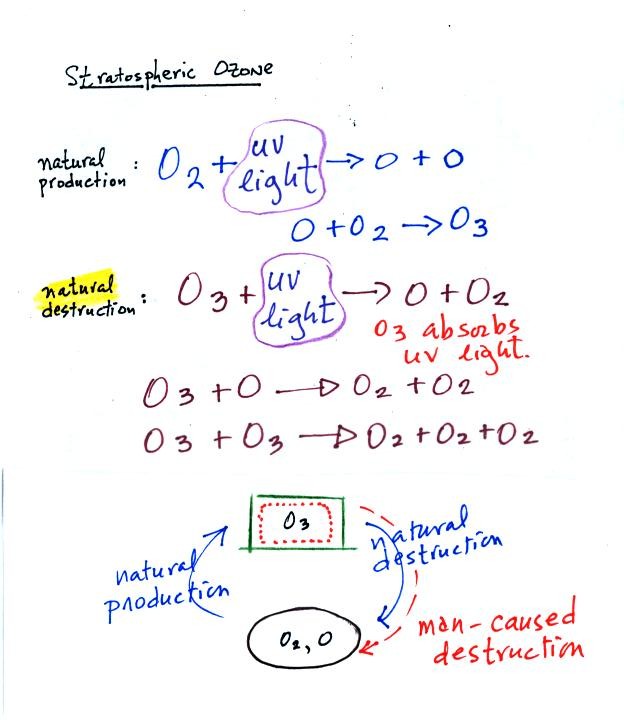 Stratospheric Ozone
natural production : O2 + uv light → O + O
O + O2 → O3
natural destruction : O3 + uv light → O + O2
O3 absorbs
uv light.
O3 + O → O2 + O2
O3 + O3 → O2 + O2 + O2
O3
natural
destruction
natural
production
O2, O
man-caused
destruction